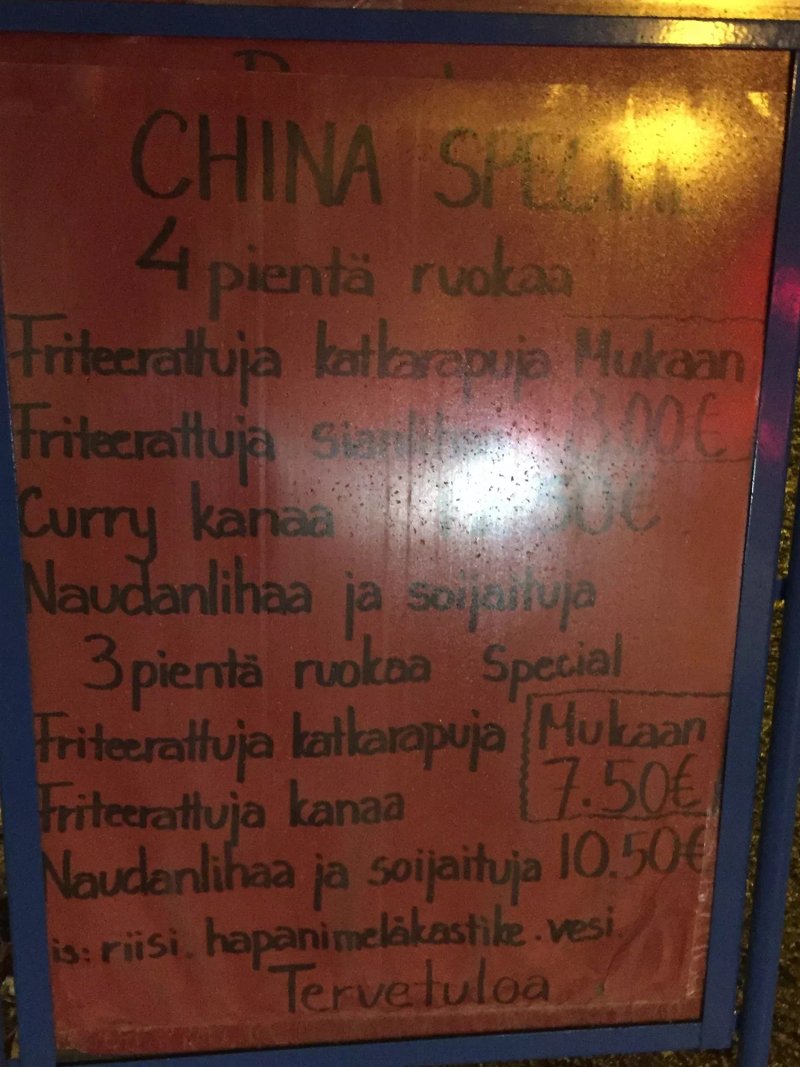 CHINA SPECIAL
4 pientä ruokaa
Friteerattuja katkarapuja Mukaan
Friteerattuja 8.00€
Curry kanaa
Naudanlihaa ja soijaituja
3 pientä ruokaa Special
Friteerattuja katkarapuja Mukaan
Friteerattuja kanaa 7.50€
Naudanlihaa ja soijaituja 10.50€
is: riisi. hapanimeläkastike. vesi.
Tervetuloa